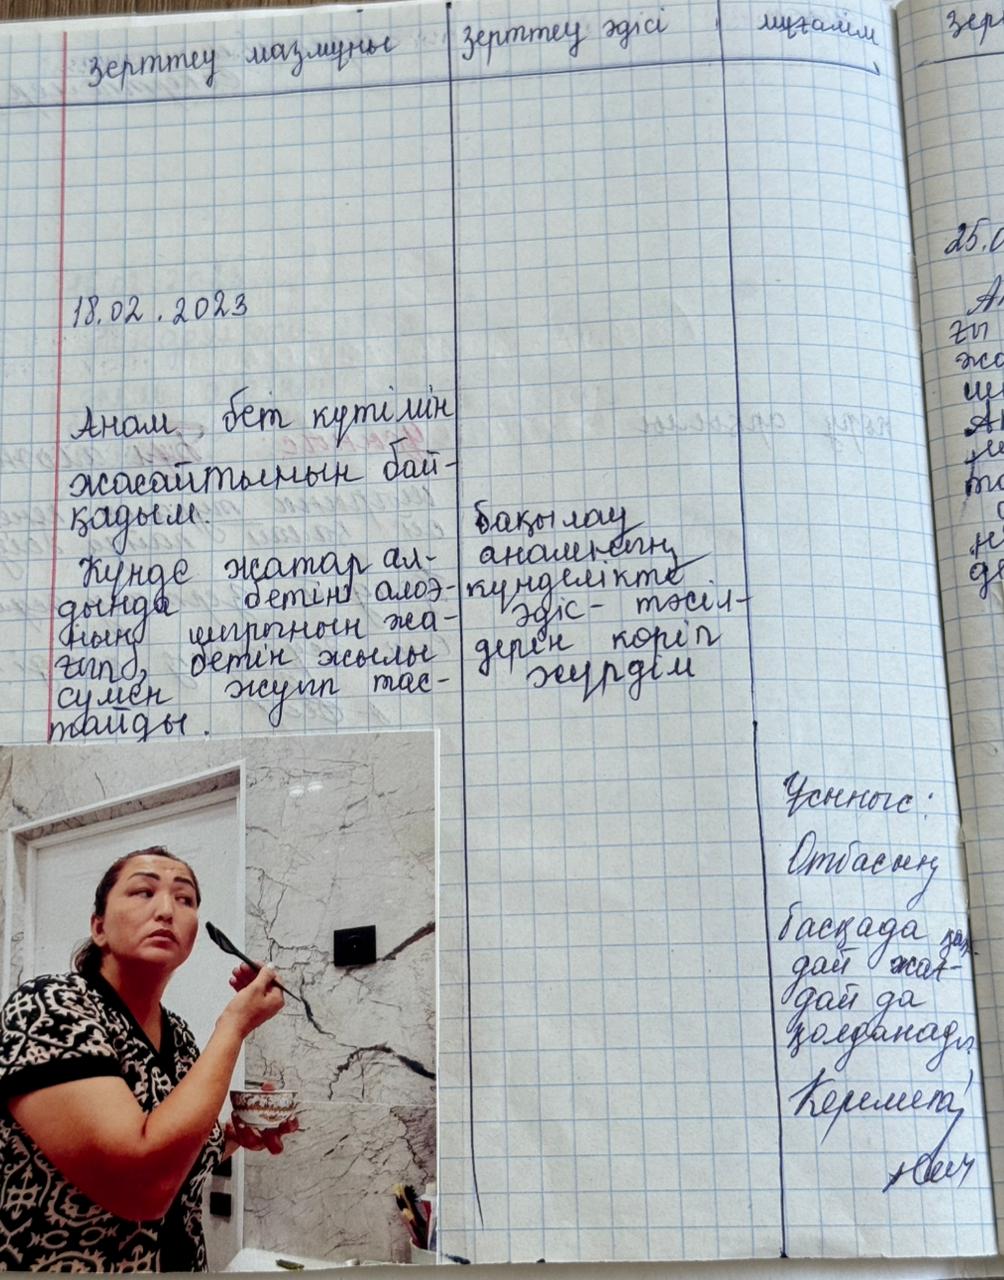 зерттеу мазмұны
зерттеу әдісі
мұғалім
18.02.2023
Анам бет күтімін
жасайтынын бай-
қадым.
Күнде жатар ал-
дында бетіне алоэ-
ның шырынын жа-
ғып, бетін жылы
сумен жуып тас-
тайды.
Бақылау
анамның
күнделікте
әдіс-тәсіл-
дерін көріп
жүрдім
Ұсыныс:
Отбасың
басқада қан-
дай жағ-
дай да
қолданады?
Керемет!
25.0